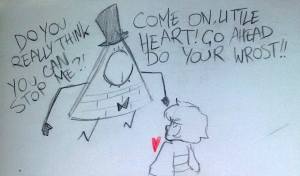 DO YOU
REALLY THINK
YOU CAN
STOP ME?!
COME ON, LITTLE
HEART! GO AHEAD
DO YOUR WROST!!